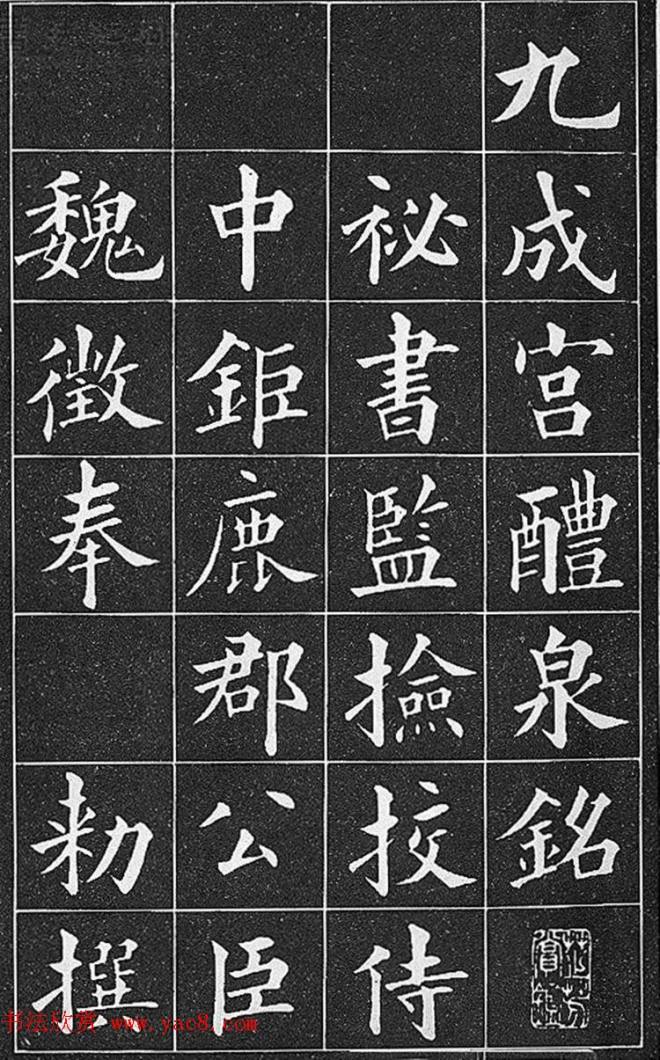 九成宫醴泉銘
祕書監撿挍侍
中鉅鹿郡公臣
魏徵奉
勑撰
书法欣赏 www.yac8.com